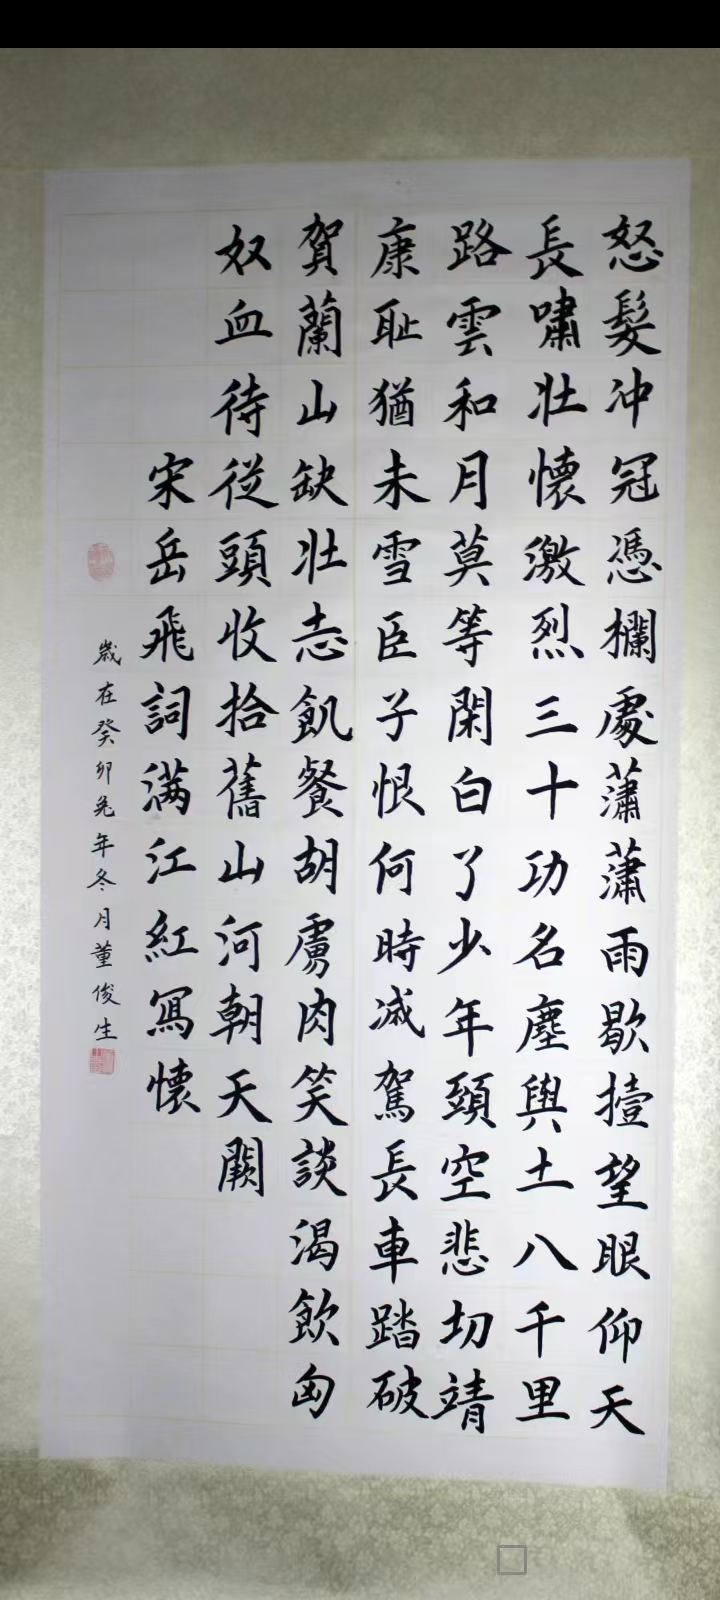 怒髮冲冠憑欄處瀟瀟雨歇擡望眼仰天
長嘯壯懷激烈三十功名塵與土八千里
路雲和月莫等閑白了少年頭空悲切靖
康耻猶未雪臣子恨何時滅駕長車踏破
賀蘭山缺壯志飢餐胡虜肉笑談渴飲匈
奴血待從頭收拾舊山河朝天闕
宋岳飛詞满江紅寫懷
歲在癸卯兔年冬月董俊生